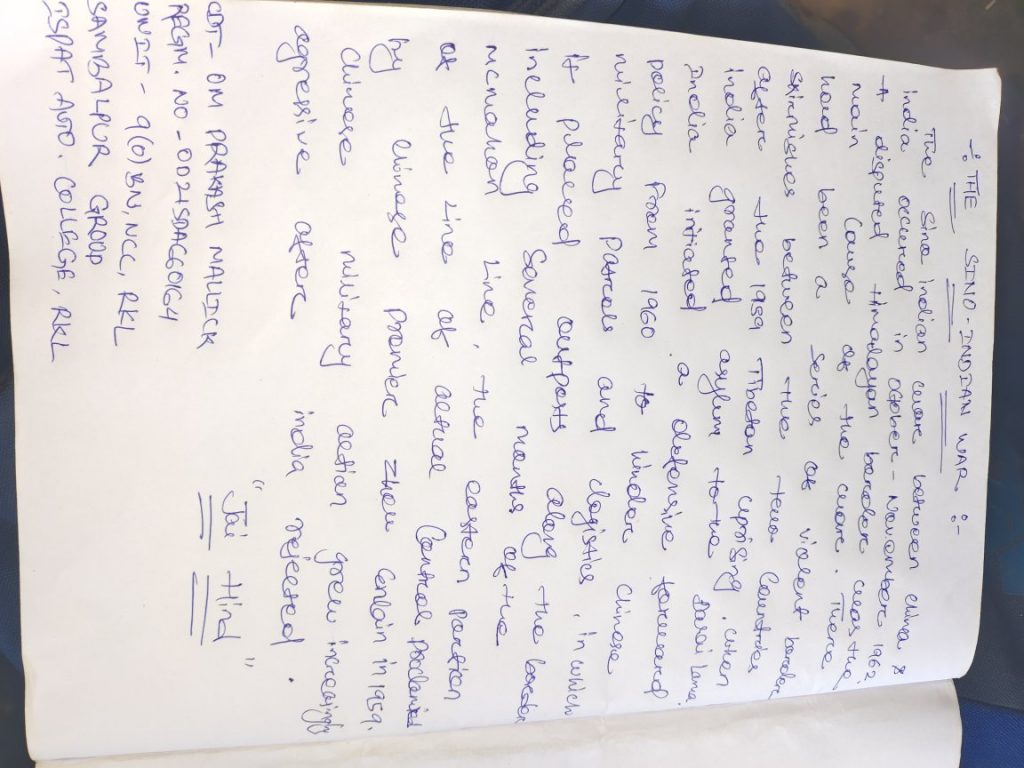 -: THE SINO-INDIAN WAR :-
The Sino indian ware between china &
india occured in october - November 1962
A disputed Himalayan boredore was the
main Cause of the ware. There
had been a series of violent boreder
skirmishes between the two Countries
after the 1959 Tibetan uprising. when
india granted asylum to the Dalai Lama.
India initiated a defensive foreward
policy from 1960 to hinder chinese
military patrols and logistics, in which
it placed outposts along the border
including Several months of the
mcmahon Line, the eastern portion
of the Line of actual Control Proclaimed
by chinese premier zhou enlain in 1959.
chinese military action grew increasingly
aggressive after india rejected.
"Jai Hind"
CDT- OM PRAKASH MALICK
REGM. NO - OD21SDA660164
UNIT - 9(O)BN, NCC, RKL
SAMBALPUR GROUP
ISPAT AUTO. COLLEGE, RKL